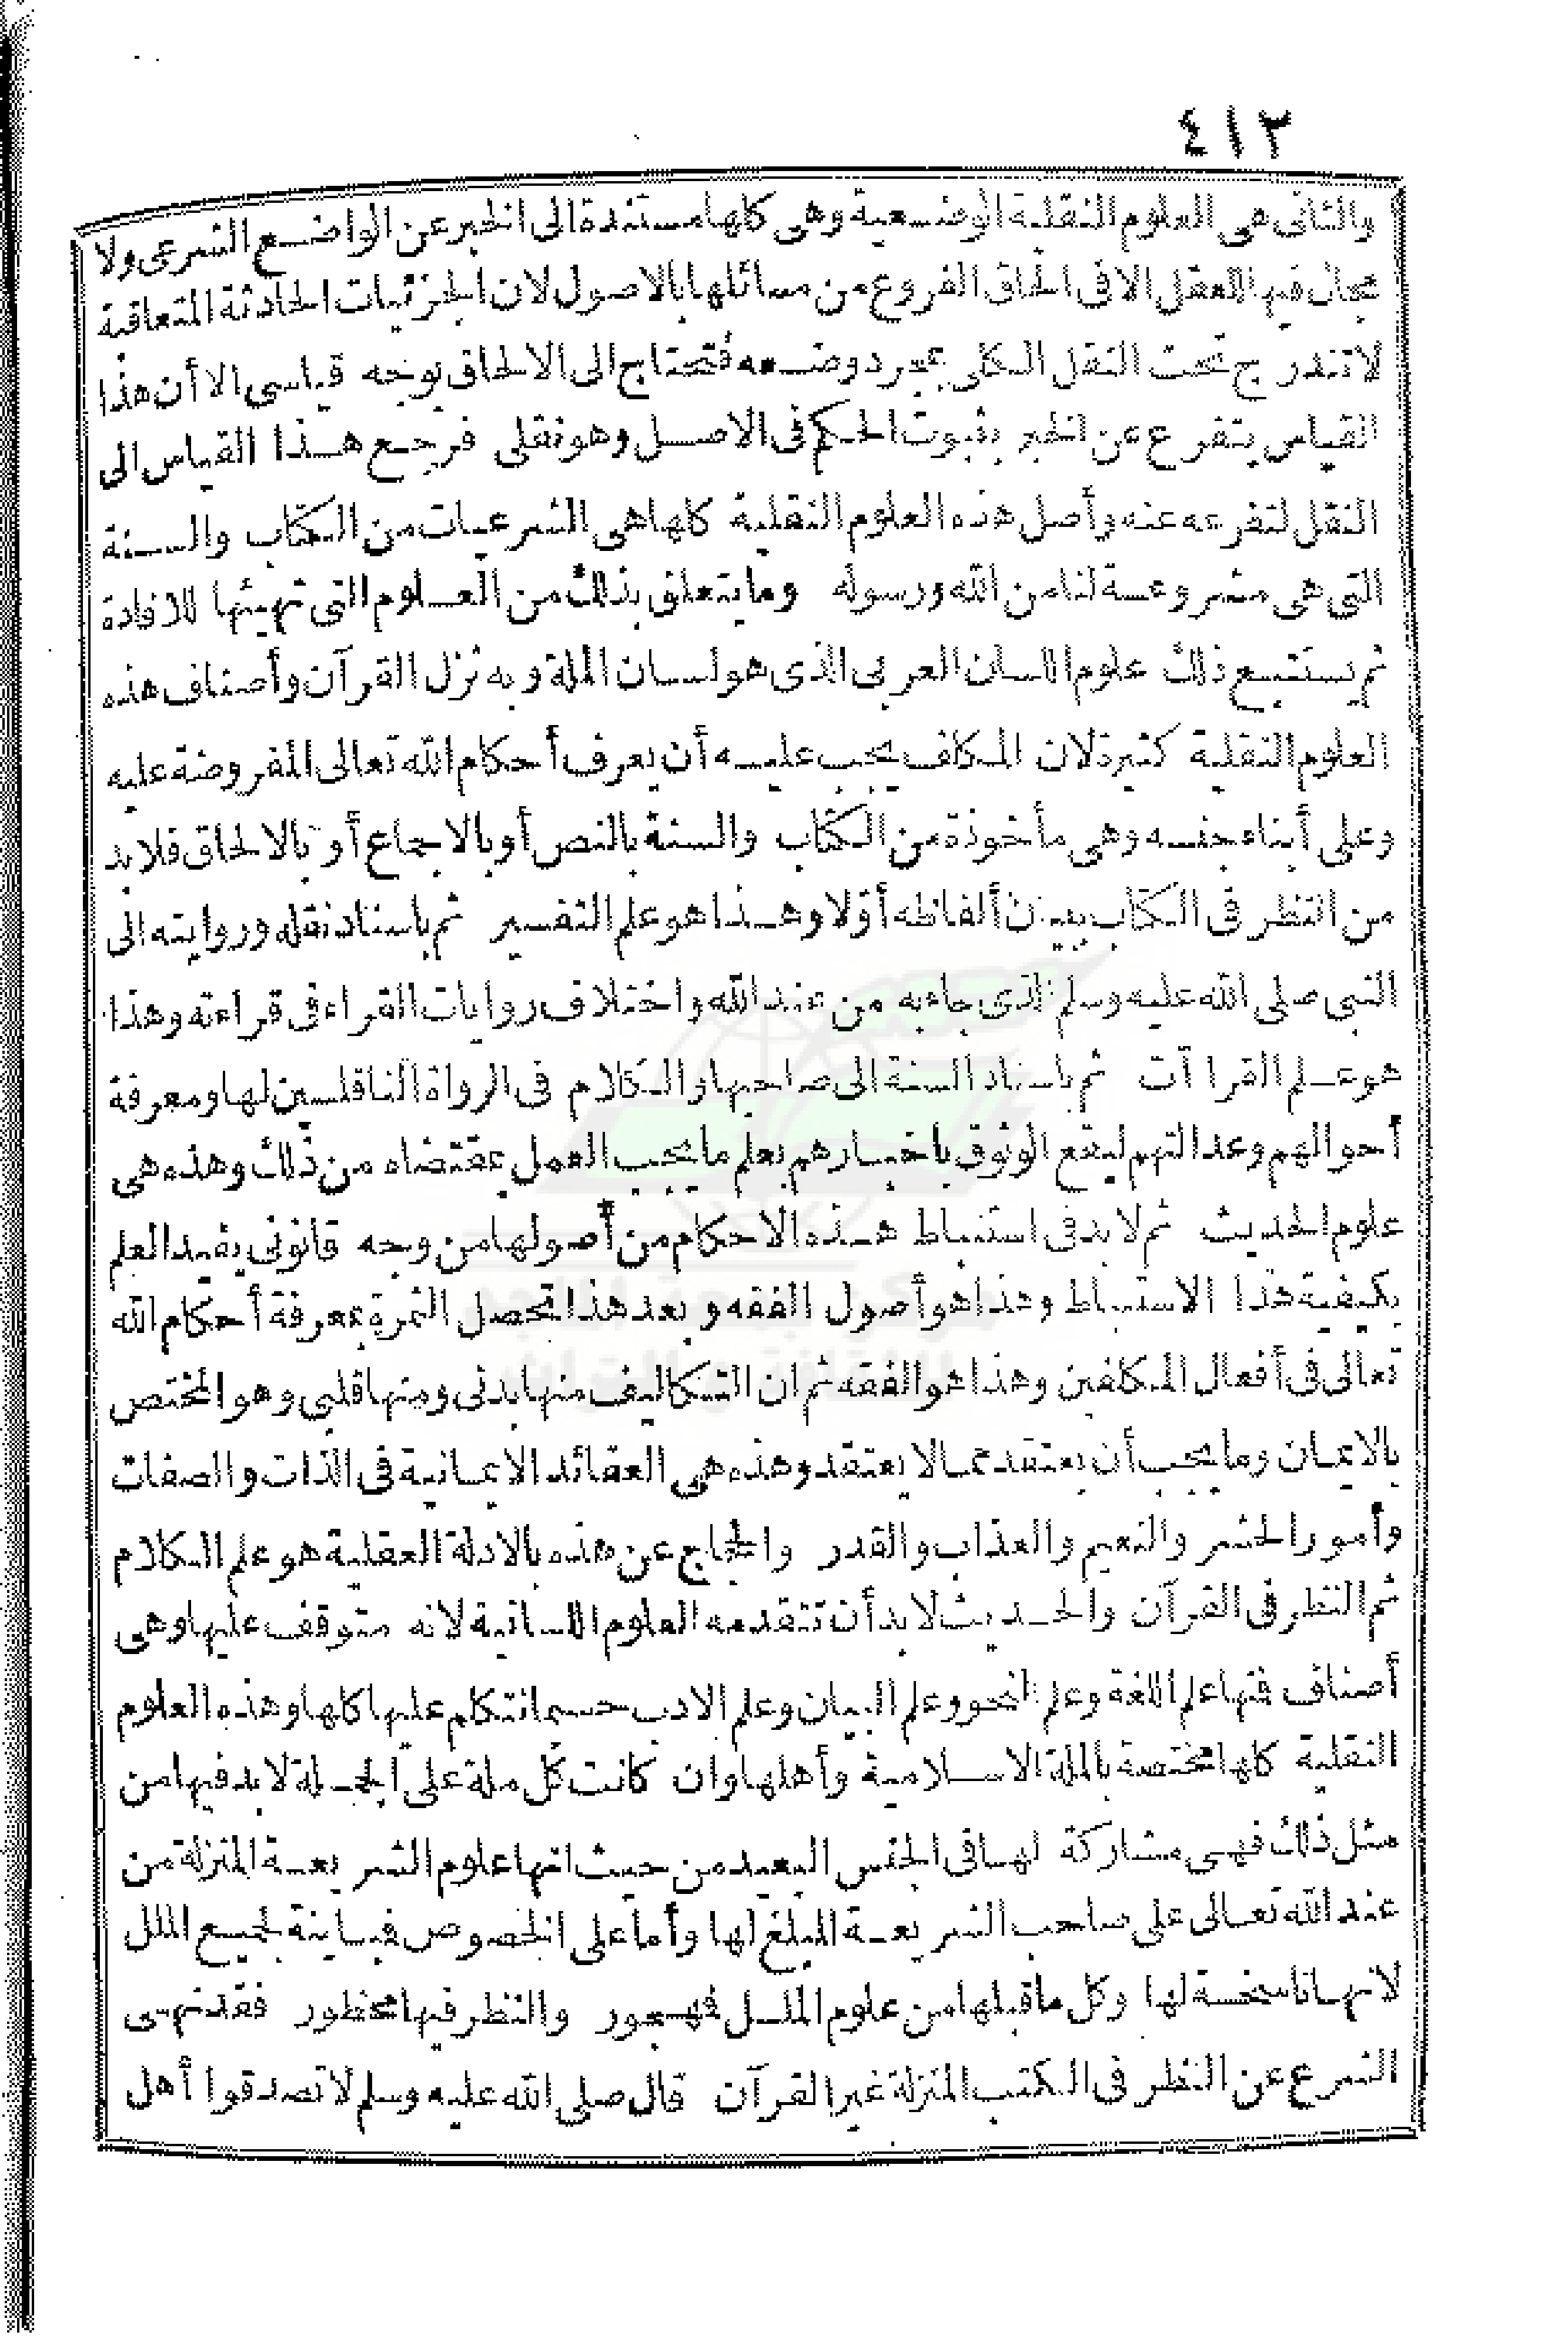 ٤١٣
والثانى هى العلوم النقلية الوضعية وهى كلها مستندة الى الخبر عن الواضع الشرعى ولا
مجال فيها للعقل الا فى الحاق الفروع من مسائلها بالاصول لان الجزئيات الحادثة المتعاقبة
لا تندرج تحت النقل الكلى بمجرد وضعه فتحتاج الى الالحاق بوجه قياسى الا أن هذا
القياس يتفرع عن الخبر بثبوت الحكم فى الاصل وهو نقلى فرجع هذا القياس الى
النقل لتفرعه عنه وأصل هذه العلوم النقلية كلها هى الشرعيات من الكتاب والسنة
التى هى مشروعة لنا من الله ورسوله وما يتعلق بذلك من العلوم التى تهيئها للافادة
ثم يستتبع ذلك علوم اللسان العربى الذى هو لسان الملة وبه نزل القرآن وأصناف هذه
العلوم النقلية كثيرة لان المكلف يجب عليه أن يعرف أحكام الله تعالى المفروضة عليه
وعلى أبناء جنسه وهى مأخوذة من الكتاب والسنة بالنص أو بالاجماع أو بالالحاق فلا بد
من النظر فى الكتاب ببيان ألفاظه أولا وهذا هو علم التفسير ثم باسناد نقله وروايته الى
النبى صلى الله عليه وسلم الذى جاء به من عند الله واختلاف روايات القراء فى قراءته وهذا
هو علم القراآت ثم باسناد السنة الى صاحبها والكلام فى الرواة الناقلين لها ومعرفة
أحوالهم وعدالتهم ليقع الوثوق باخبارهم بعلم ما يجب العمل بمقتضاه من ذلك وهذه هى
علوم الحديث ثم لا بد فى استنباط هذه الاحكام من أصولها من وجه قانونى يفيد العلم
بكيفية هذا الاستنباط وهذا هو أصول الفقه وبعد هذا تحصل الثمرة بمعرفة أحكام الله
تعالى فى أفعال المكلفين وهذا هو الفقه ثم ان التكاليف منها بدنى ومنها قلبى وهو المختص
بالايمان وما يجب أن يعتقد مما لا يعتقد وهذه هى العقائد الايمانية فى الذات والصفات
وأمور الحشر والنعيم والعذاب والقدر والحجاج عن هذه بالادلة العقلية هو علم الكلام
ثم النظر فى القرآن والحديث لا بد أن تتقدمه العلوم اللسانية لانه متوقف عليها وهى
أصناف فمنها علم اللغة وعلم النحو وعلم البيان وعلم الادب حسبما نتكلم عليها كلها وهذه العلوم
النقلية كلها مختصة بالملة الاسلامية وأهلها وان كانت كل ملة على الجملة لا بد فيها من
مثل ذلك فهى مشاركة لها فى الجنس البعيد من حيث انها علوم الشريعة المنزلة من
عند الله تعالى على صاحب الشريعة المبلغ لها وأما على الخصوص فمباينة لجميع الملل
لانها ناسخة لها وكل ما قبلها من علوم الملل فمهجور والنظر فيها محظور فقد نهى
الشرع عن النظر فى الكتب المنزلة غير القرآن قال صلى الله عليه وسلم لا تصدقوا أهل